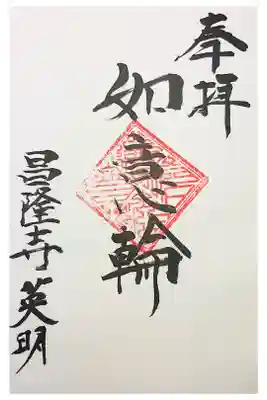 奉拝
如意輪
昌隆寺英明